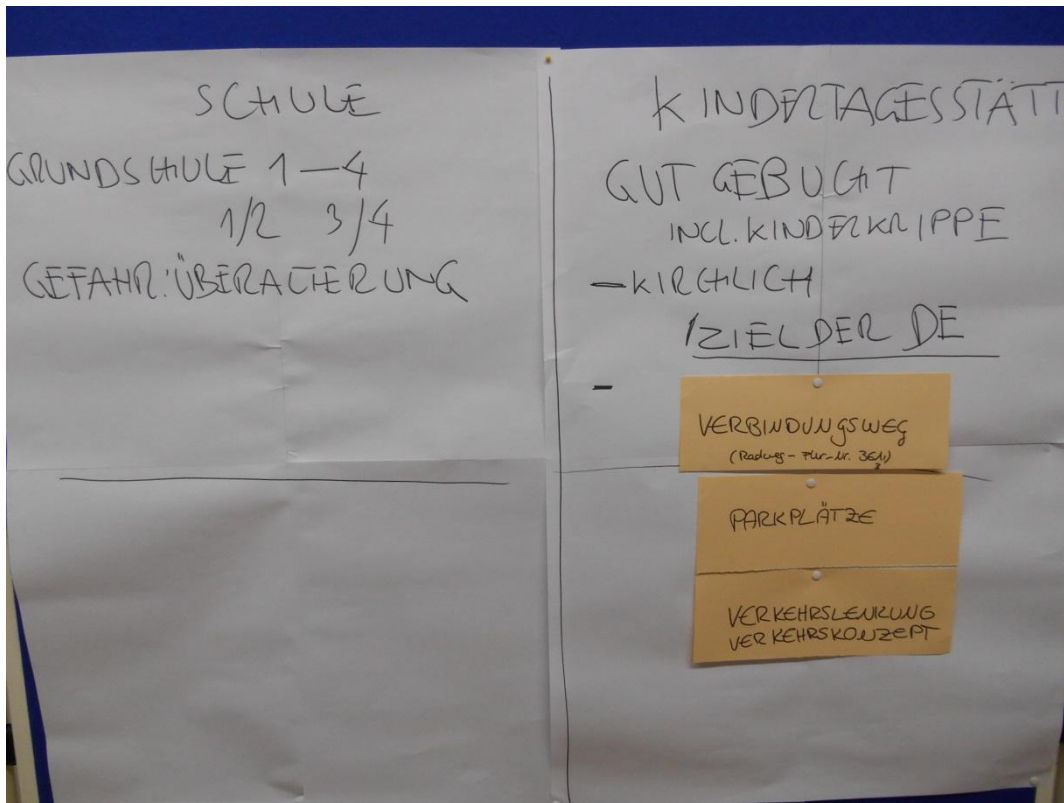 SCHULE
GRUNDSCHULE 1 — 4
1/2 3/4
GEFAHR: ÜBERALTERUNG
KINDERTAGESSTÄTT
GUT GEBUCHT
INCL. KINDERKRIPPE
— KIRCHLICH
ZIEL DER DE
-
VERBINDUNGSWEG
(Radweg - Flur-Nr.
PARKPLÄTZE
VERKEHRSLENKUNG
VERKEHRSKONZEPT